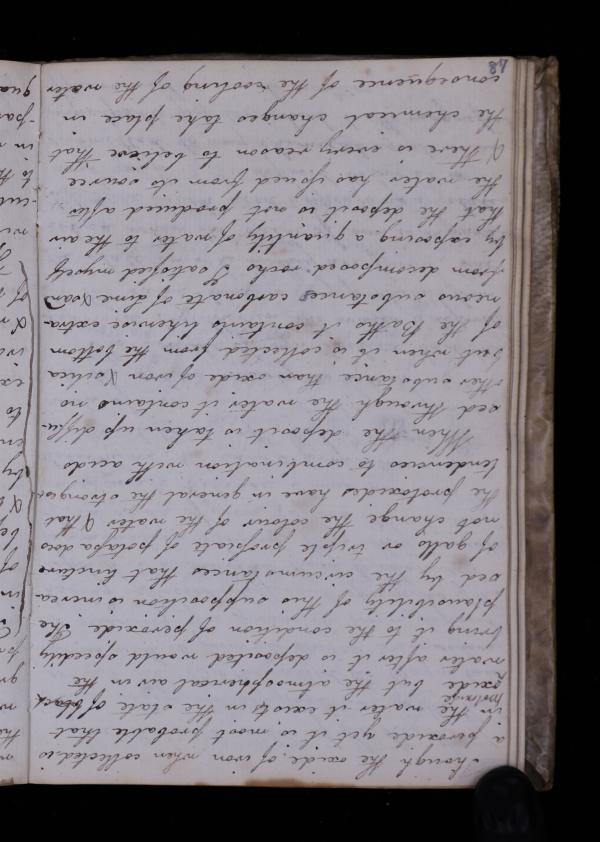 though the oxide of iron when collected is
a peroxide yet it is most probable that
in the water it exists in the state of black
protoxide
oxide but the atmospherical air in the
water after it is deposited would speedily
bring it to the condition of peroxide. The
plausibility of this supposition is increa-
sed by the circumstances that tincture
of galls or triple prussiate of potassa does
not change the colour of the water & that
the protoxides have in general the stronger
tendencies to combination with acids
When the deposit is taken up diffu-
sed through the water it contains no
other substance than oxide of iron & silica
but when it is collected from the bottom
of the Baths it contains likewise extra-
neous substances carbonate of lime & sand
from decomposed rocks I satisfied myself
by exposing a quantity of water to the air
that the deposit is not produced after
the water has issued from its source
& there is every reason to believe that
the chemical changes take place in
consequence of the cooling of the water
87